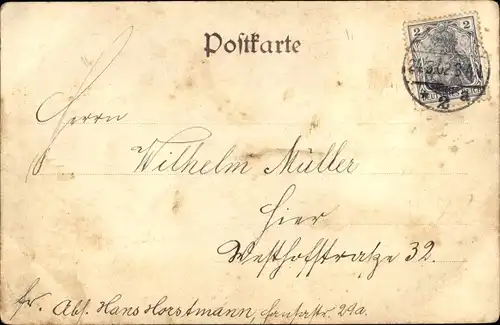 Postkarte
2 2
24.3.02
* 2 a
Herrn
Wilhelm Müller
Hier
Westhofstraße 32.
fr. Abs. Hans Horstmann, Hansastr. 29a.